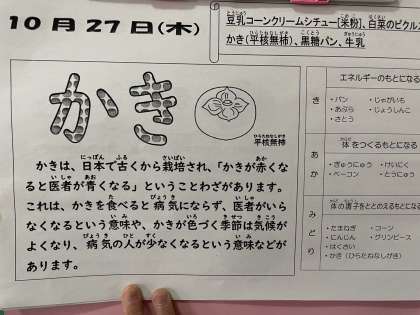 10月27日(木)
豆乳コーンクリームシチュー[米粉]、白菜のピクル
かき(平核無柿)、黒糖パン、牛乳
かき
平核無柿
かきは、日本で古くから栽培され、「かきが赤くな
ると医者が青くなる」ということわざがあります。
これは、かきを食べると病気にならず、医者がいら
なくなるという意味や、かきが色づく季節は気候が
よくなり、病気の人が少なくなるという意味などが
あります。
エネルギーのもとになる
き
・パン ・じゃがいも
・あぶら ・じょうしんこ
・さとう
体をつくるもとになる
あか
・ぎゅうにゅう ・けいにく
・ベーコン ・とうにゅう
体の調子をととのえるもとになる
みどり
・たまねぎ ・コーン
・にんじん ・グリンピース
・はくさい
・かき(ひらたねなしがき)